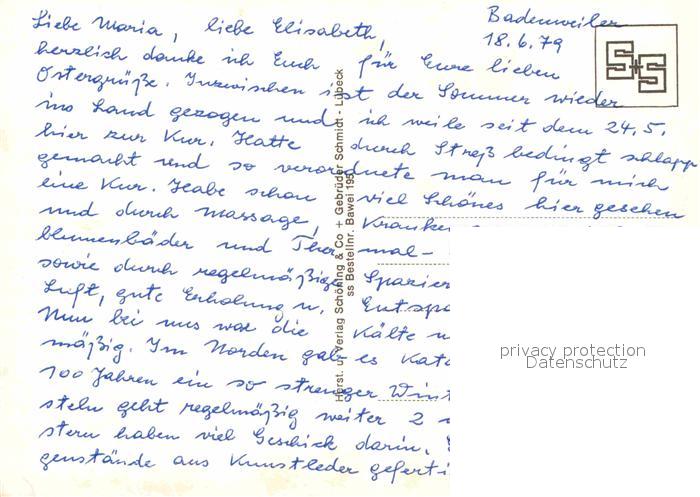 Badenweiler
18.6.79
Liebe Maria, liebe Elisabeth,
herzlich danke ich Euch für Eure lieben
Ostergrüße. Inzwischen ist der Sommer wieder
ins Land gezogen und ich weile seit dem 24.5.
hier zur Kur. Hatte durch Streß bedingt schlapp
gemacht und so verordnete man für mich
eine Kur. Habe schon viel Schönes hier gesehen
und durch Massage, Kranken
blumenbäder und Thermal-
sowie durch regelmäßige Spazier
Luft, gute Erholung u. Entspa
Nun bei uns war die Kälte
mäßig. Im Norden gab es Kat
100 Jahren ein so strenger Wint
steln geht regelmäßig weiter 2
stern haben viel Geschick darin.
genstände aus Kunstleder geferti
Horst. u. Verlag Schöning & Co + Gebrüder Schmidt - Lübeck
ss Bestellnr. Bawei 195
S+S
privacy protection
Datenschutz